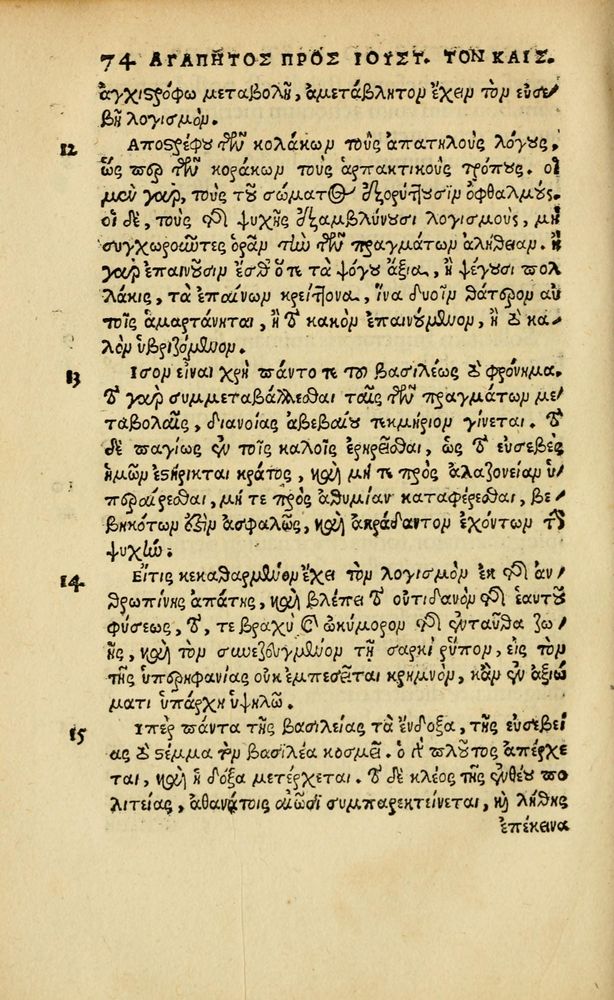 74 ΑΓΑΠΗΤΟΣ ΠΡΟΣ ΙΟΥΣΤ. ΤΟΝ ΚΑΙΣ.
ἀγχιστρόφῳ μεταβολῇ, ἀμετάβλητον ἔχειν τὸν εὐσε-
βῆ λογισμόν.
12 Αποστρέφου τῶν κολάκων τοὺς ἀπατηλοὺς λόγους,
ὥσπερ τῶν κοράκων τοὺς ἁρπακτικοὺς τρόπους. οἱ
μὲν γὰρ, τοὺς τοῦ σώματος ἐξορύττουσιν ὀφθαλμούς.
οἱ δὲ, τοὺς τῆς ψυχῆς ἐξαμβλύνουσι λογισμοὺς, μὴ
συγχωροῦντες ὁρᾶν τὴν τῶν πραγμάτων ἀλήθειαν. ἢ
γὰρ ἐπαινοῦσιν ἔσθ' ὅτε τὰ ψόγου ἄξια, ἢ ψέγουσι πολ
λάκις, τὰ ἐπαίνων κρείττονα, ἵνα δυοῖν θάτερον αὐ
τοῖς ἁμαρτάνηται, ἢ τὸ κακὸν ἐπαινούμενον, ἢ τὸ κα-
λὸν ὑβριζόμενον.
13 Ισον εἶναι χρὴ πάντοτε τοῦ βασιλέως τὸ φρόνημα.
τὸ γὰρ συμμεταβάλλεσθαι ταῖς τῶν πραγμάτων με-
ταβολαῖς, διανοίας ἀβεβαίου τεκμήριον γίνεται. τὸ
δὲ παγίως ἐν τοῖς καλοῖς ἐρηρεῖσθαι, ὡς τὸ εὐσεβὲς
ἡμῶν ἐστήρικται κράτος, καὶ μήτε πρὸς ἀλαζονείαν ὑ-
περαίρεσθαι, μήτε πρὸς ἀθυμίαν καταφέρεσθαι, βε-
βηκότων ἐστὶν ἀσφαλῶς, καὶ ἀκράδαντον ἐχόντων τὴν
ψυχὴν.
14 Εἴτις κεκαθαρμένον ἔχει τὸν λογισμὸν ἐκ τῆς ἀν-
θρωπίνης ἀπάτης, καὶ βλέπει τὸ οὐτιδανὸν τῆς ἑαυτοῦ
φύσεως, τὸ, τε βραχὺ καὶ ὠκύμορον τῆς ἐνταῦθα ζω-
ῆς, καὶ τὸν συνεζευγμένον τῇ σαρκὶ ῥύπον, εἰς τὸν
τῆς ὑπερηφανίας οὐκ ἐμπεσεῖται κρημνὸν, κἂν ἐν ἀξιώ
ματι ὑπάρχῃ ὑψηλῷ.
15 Ὑπὲρ πάντα τῆς βασιλείας τὰ ἔνδοξα, τῆς εὐσεβεί
ας τὸ στέμμα τὸν βασιλέα κοσμεῖ. ὁ γὰρ πλοῦτος ἀπέρχε
ται, καὶ ἡ δόξα μετέρχεται. τὸ δὲ κλέος τῆς ἐνθέου πο
λιτείας, ἀθανάτοις αἰῶσι συμπαρεκτείνεται, καὶ λήθης
ἐπέκεινα